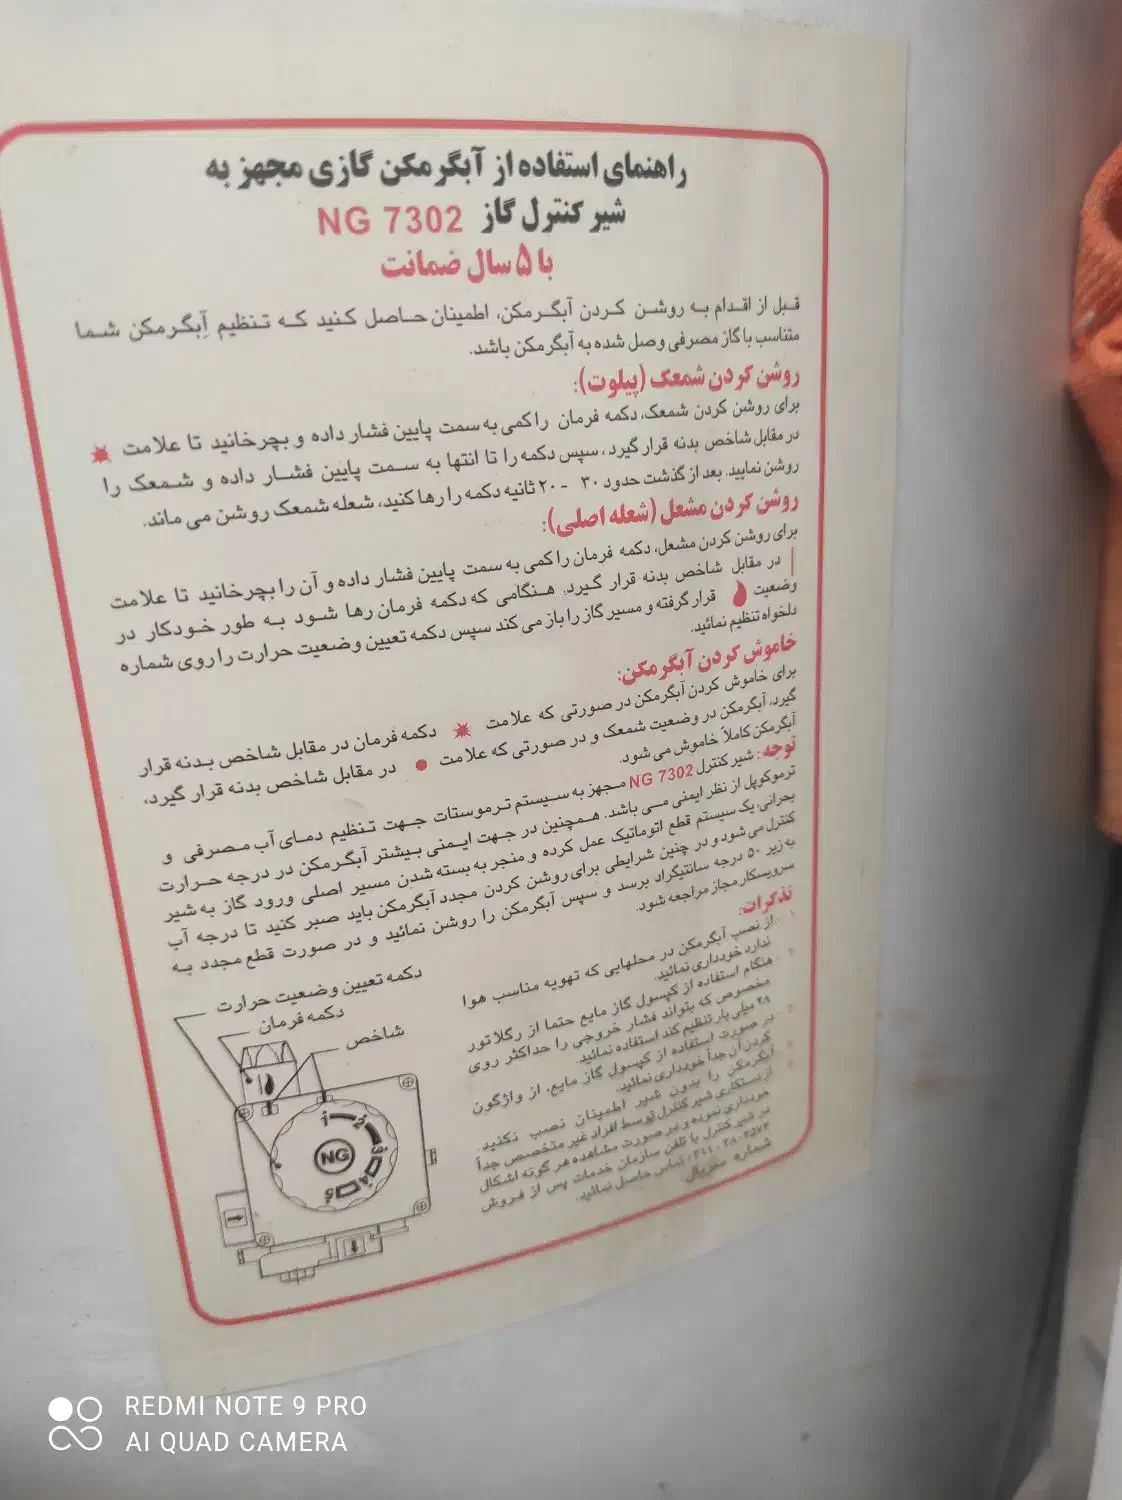 راهنمای استفاده از آبگرمکن گازی مجهز به
شیر کنترل گاز NG 7302
با ۵ سال ضمانت
قبل از اقدام به روشن کردن آبگرمکن، اطمینان حاصل کنید که تنظیم آبگرمکن شما
متناسب با گاز مصرفی وصل شده به آبگرمکن باشد.
روشن کردن شمعک (پیلوت):
برای روشن کردن شمعک، دکمه فرمان را کمی به سمت پایین فشار داده و بچرخانید تا علامت
در مقابل شاخص بدنه قرار گیرد، سپس دکمه را تا انتها به سمت پایین فشار داده و شمعک را
روشن نمایید. بعد از گذشت حدود ۳۰ - ۲۰ ثانیه دکمه را رها کنید، شعله شمعک روشن می ماند.
روشن کردن مشعل (شعله اصلی):
برای روشن کردن مشعل، دکمه فرمان را کمی به سمت پایین فشار داده و آن را بچرخانید تا علامت
| در مقابل شاخص بدنه قرار گیرد. هنگامی که دکمه فرمان رها شود به طور خودکار در
وضعیت قرار گرفته و مسیر گاز را باز می کند سپس دکمه تعیین وضعیت حرارت را روی شماره
دلخواه تنظیم نمائید.
خاموش کردن آبگرمکن:
برای خاموش کردن آبگرمکن در صورتی که علامت دکمه فرمان در مقابل شاخص بدنه قرار
گیرد، آبگرمکن در وضعیت شمعک و در صورتی که علامت ● در مقابل شاخص بدنه قرار گیرد،
آبگرمکن کاملاً خاموش می شود.
توجه: شیر کنترل NG 7302 مجهز به سیستم ترموستات جهت تنظیم دمای آب مصرفی و
ترموکوپل از نظر ایمنی می باشد. همچنین در جهت ایمنی بیشتر آبگرمکن در درجه حرارت
بحرانی، یک سیستم قطع اتوماتیک عمل کرده و منجر به بسته شدن مسیر اصلی ورود گاز به شیر
کنترل می شود و در چنین شرایطی برای روشن کردن مجدد آبگرمکن باید صبر کنید تا درجه آب
به زیر ۵۰ درجه سانتیگراد برسد و سپس آبگرمکن را روشن نمائید و در صورت قطع مجدد به
سرویسکار مجاز مراجعه شود.
تذکرات:
۱ - از نصب آبگرمکن در محلهایی که تهویه مناسب هوا
ندارد خودداری نمائید.
۲ - هنگام استفاده از کپسول گاز مایع حتما از رگلاتور
مخصوص که بتواند فشار خروجی را حداکثر روی
۲۸ میلی بار تنظیم کند استفاده نمائید.
۳ - در صورت استفاده از کپسول گاز مایع، از واژگون
کردن آن جداً خودداری نمائید.
آبگرمکن را بدون شیر اطمینان نصب نکنید.
از دستکاری شیر کنترل توسط افراد غیر متخصص جداً
خودداری نموده و در صورت مشاهده هر گونه اشکال
در شیر کنترل با تلفن سازمان خدمات پس از فروش
تماس حاصل نمائید.
شماره سریال
دکمه تعیین وضعیت حرارت
دکمه فرمان
شاخص
1 2
NG
REDMI NOTE 9 PRO
AI QUAD CAMERA